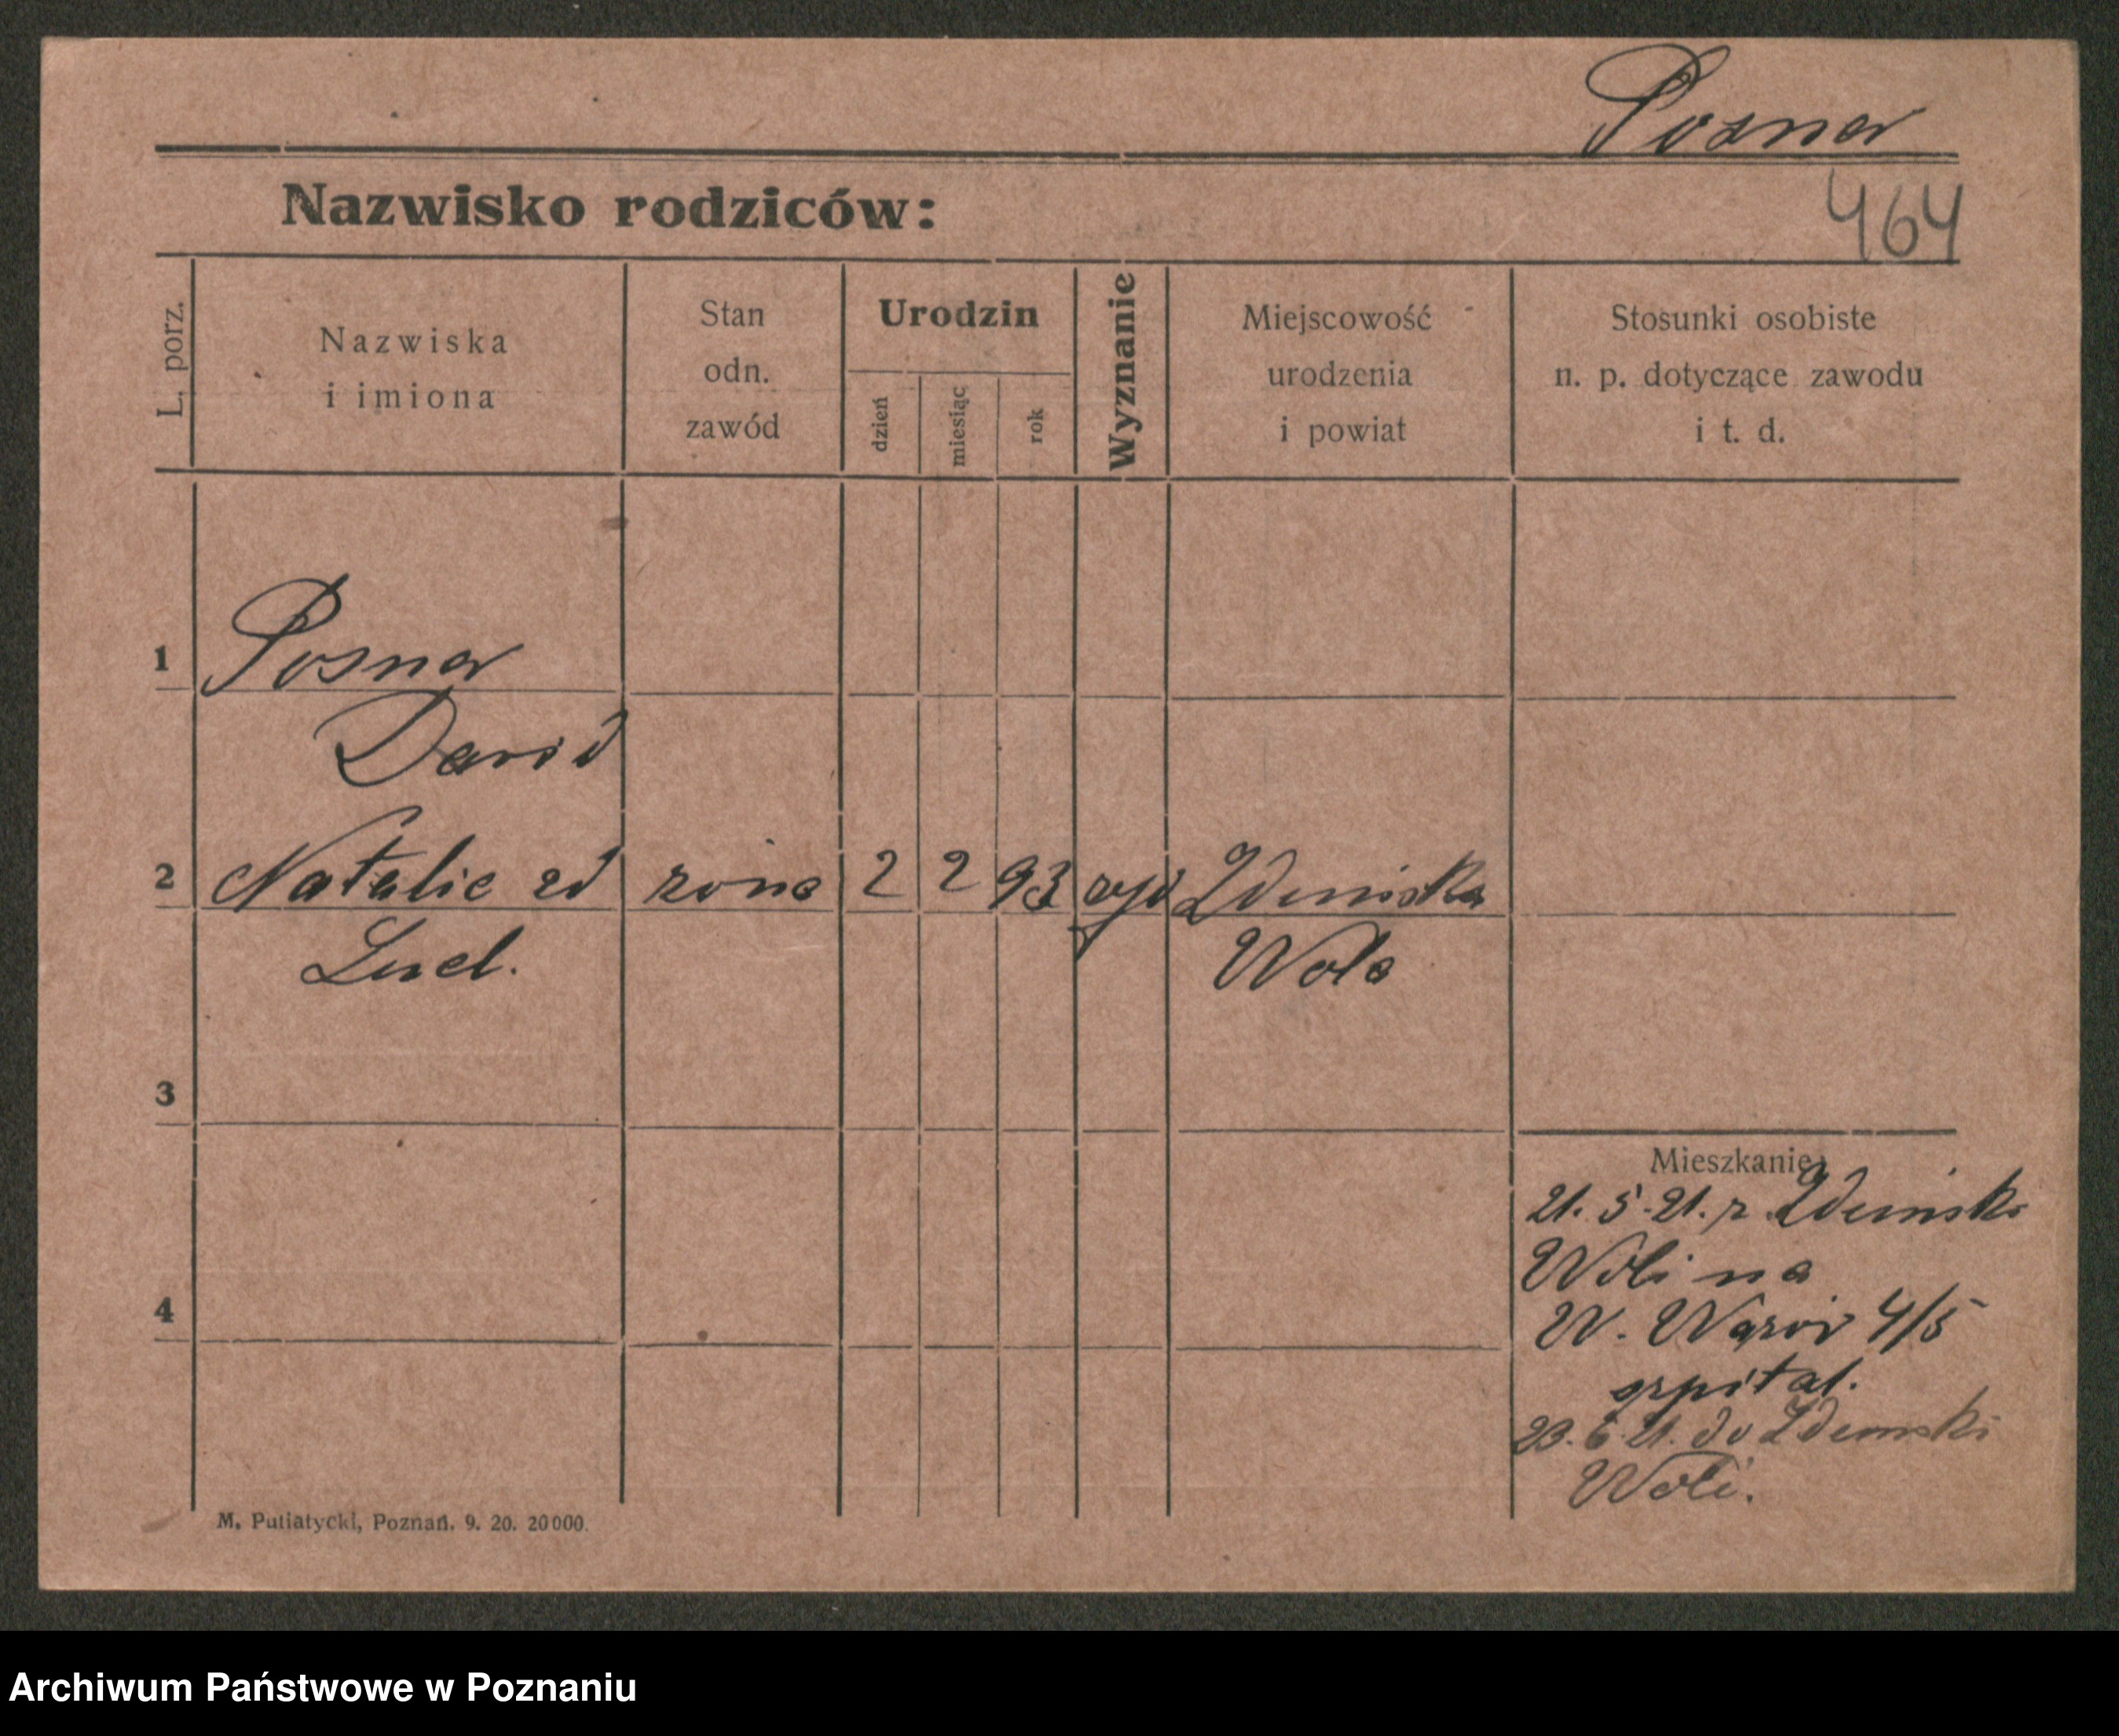 Posner
464
Nazwisko rodziców:
L. porz.
Nazwiska
i imiona
Stan
odn.
zawód
Urodzin
dzień
miesiąc
rok
Wyznanie
Miejscowość
urodzenia
i powiat
Stosunki osobiste
n. p. dotyczące zawodu
i t. d.
1 Posner
David
2 Natalie zd żona 2 2 93 Zduńska
Wola
3
Mieszkanie:
21. 5. 21. z Zduński
Woli na
W. 4/5
szpital.
4
23. 6. 21. do Zduński
Woli.
M. Putiatycki, Poznań. 9. 20. 20000.
Archiwum Państwowe w Poznaniu